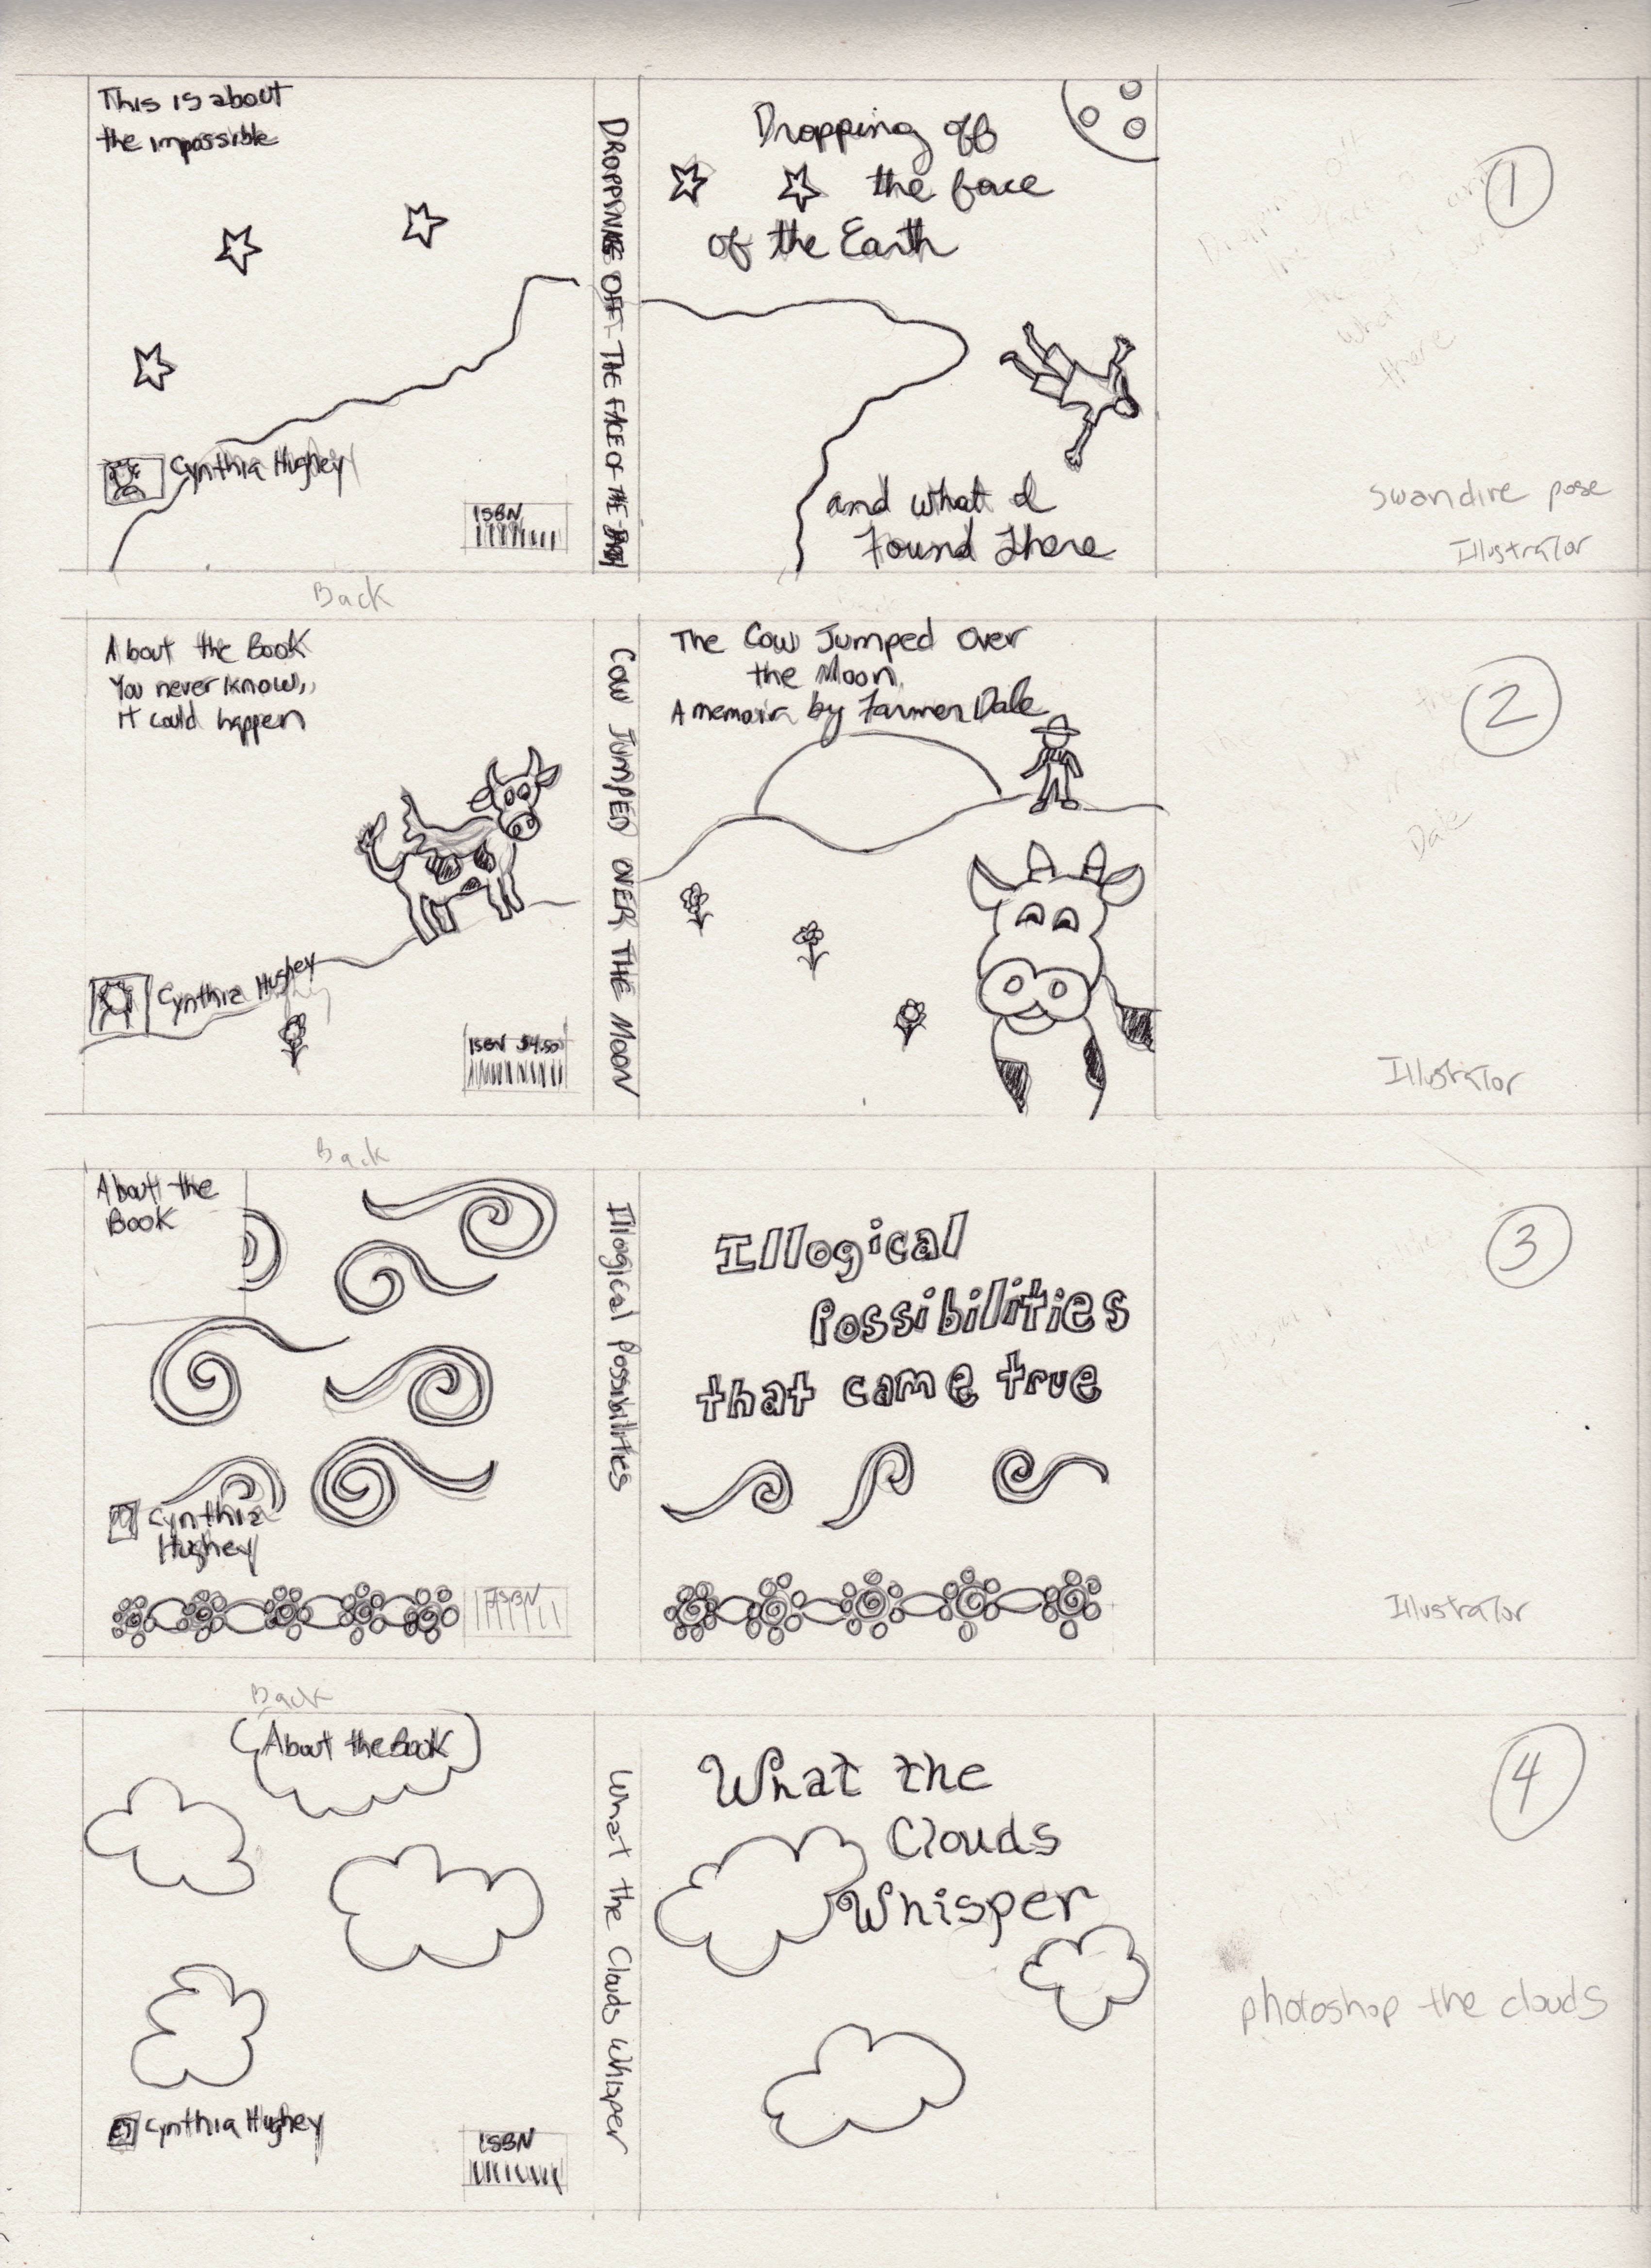 This is about
the impossible
Cynthia Hughey
ISBN
DROPPING OFF THE FACE OF THE
Dropping off
the face
of the Earth
and what I
Found There
1
swandive pose
Illustrator
Back
About the Book
You never know,,
it could happen
Cynthia Hughey
ISBN $4.50
COW JUMPED OVER THE MOON
The Cow Jumped Over
the Moon
A memoir by Farmer Dale
2
Dale
Illustrator
Back
About the
Book
Cynthia
Hughey
ISBN
Illogical Possibilities
Illogical
Possibilities
that came true
3
Illustrator
Back
About the Book
Cynthia Hughey
ISBN
What the Clouds Whisper
What the
Clouds
Whisper
4
photoshop the clouds